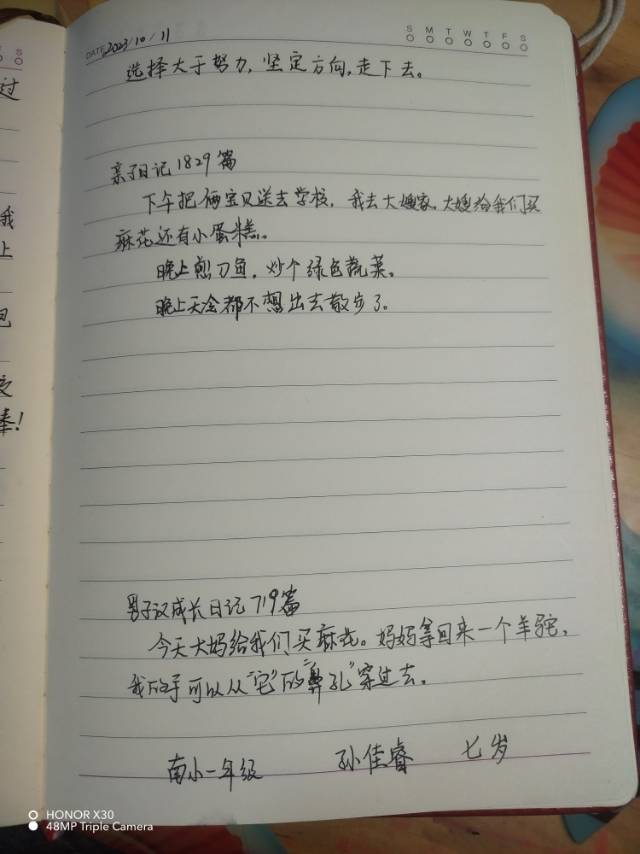 S M T W T F S
DATE 2023/10/11
选择大于努力,坚定方向,走下去。
亲子日记1829篇
下午把俩宝贝送去学校,我去大嫂家。大嫂给我们买
麻花还有小蛋糕。
晚上煎刀鱼,炒个绿色蔬菜。
晚上天冷都不想出去散步了。
男子汉成长日记719篇
今天大妈给我们买麻花。妈妈拿回来一个羊驼,
我的手可以从"它"的"鼻孔"穿过去。
南小一年级 孙佳睿 七岁
过
我
上
包
棒!
HONOR X30
48MP Triple Camera